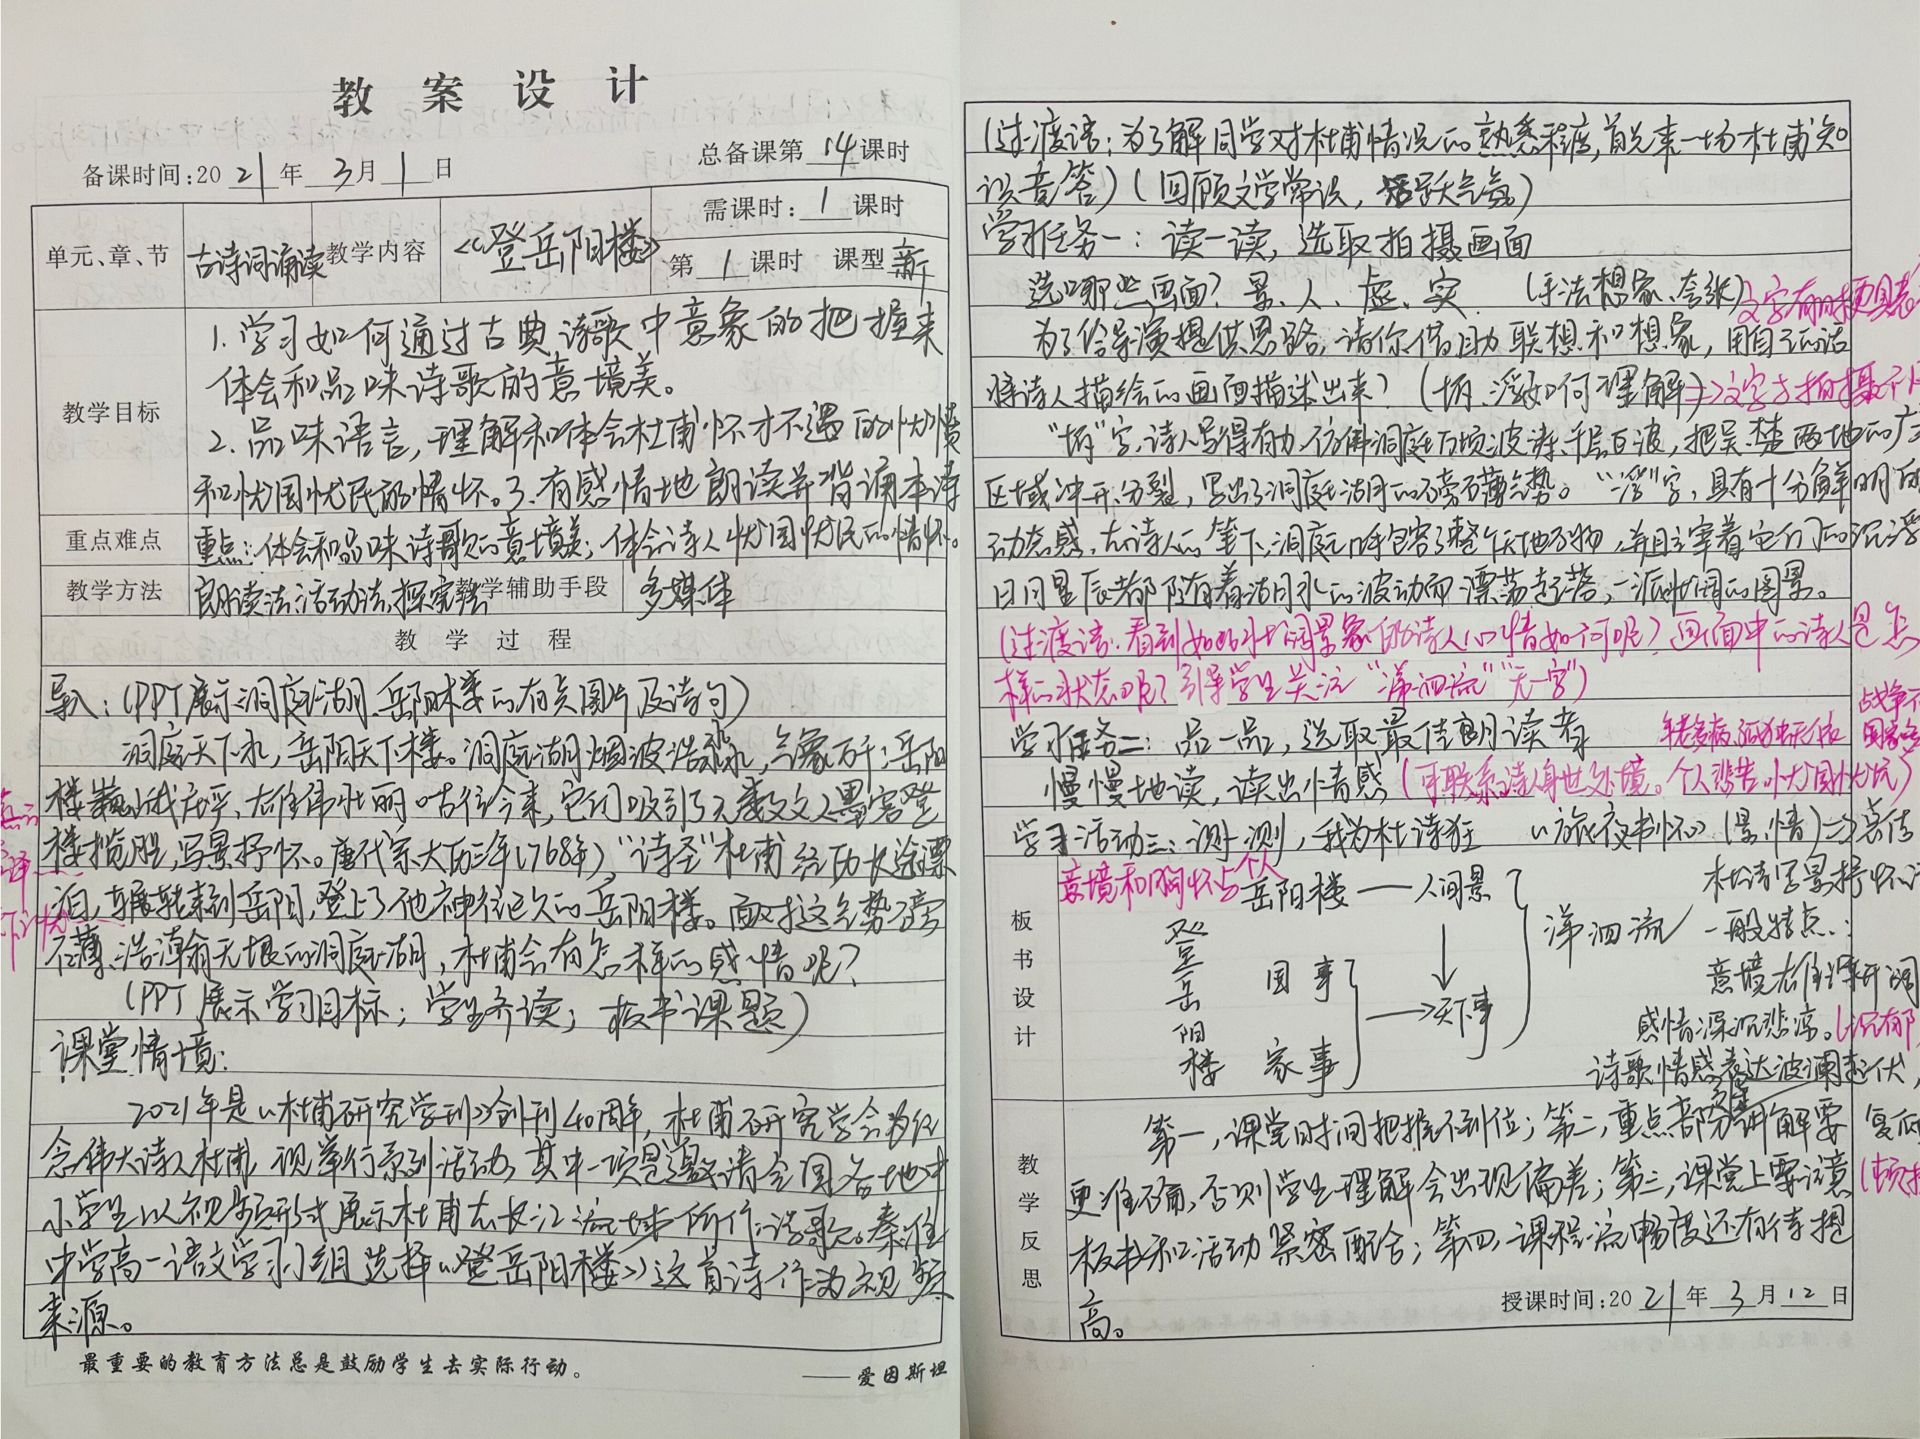 教案设计
备课时间:2021年3月1日
总备课第14课时
单元、章、节
古诗词诵读
教学内容
《登岳阳楼》
需课时:1课时
第1课时 课型新
教学目标
1.学习如何通过古典诗歌中意象的把握来
体会和品味诗歌的意境美。
2.品味语言,理解和体会杜甫怀才不遇的忧愤
和忧国忧民的情怀。3.有感情地朗读并背诵本诗
重点难点
重点:体会和品味诗歌的意境美;体会诗人忧国忧民的情怀。
教学方法
朗读法、活动法、探究法
教学辅助手段
多媒体
教学过程
导入:(PPT展示洞庭湖、岳阳楼的有关图片及诗句)
洞庭天下水,岳阳天下楼。洞庭湖烟波浩淼,气象万千;岳阳
楼巍峨高耸、雄伟壮丽。古往今来,它们吸引了无数文人墨客登
楼揽胜,写景抒怀。唐代宗大历三年(768年),“诗圣”杜甫经历长途漂
泊,辗转来到岳阳,登上了他神往已久的岳阳楼。面对这气势磅
礴、浩瀚无垠的洞庭湖,杜甫会有怎样的感情呢?
(PPT展示学习目标;学生齐读;板书课题)
课堂情境:
2021年是《杜甫研究学刊》创刊40周年,杜甫研究学会为纪
念伟大诗人杜甫,现举行系列活动,其中一项是邀请全国各地中
小学生以视频形式展示杜甫在长江流域所作诗歌。秦淮
中学高一语文学习小组选择《登岳阳楼》这首诗作为视频
来源。
最重要的教育方法总是鼓励学生去实际行动。
——爱因斯坦
(过渡语:为了解同学对杜甫情况的熟悉程度,首先来一场杜甫知
识竞答)(回顾文学常识,活跃气氛)
学习任务一:读一读,选取拍摄画面
选哪些画面?景、人、虚、实 (手法想象、夸张)
为了给导演提供思路,请你借助联想和想象,用自己的话
将诗人描绘的画面描述出来?(坼、浮如何理解)
“坼”字,诗人写得有力,仿佛洞庭万顷波涛、千层白波,把吴楚两地的广
区域冲开、分裂,写出了洞庭湖的磅礴气势。“浮”字,具有十分鲜明的
动态感,在诗人的笔下,洞庭几乎包容了整个天地万物,并且主宰着它们的沉浮
日月星辰都随着湖水的波动而漂荡起落,一派壮阔的图景。
(过渡语:看到如此壮阔景象的诗人心情如何呢?画面中的诗人是怎
样的状态呢?引导学生关注“涕泗流”“无一字”)
学习任务二:品一品,选取最佳朗读者
年老多病、孤独无依
慢慢地读,读出情感(可联系诗人身世处境。个人悲苦、忧国忧民)
学习活动三:测一测,我为杜诗狂 《旅夜书怀》(景、情)
意境和胸怀与个人
板书设计
岳阳楼——人间景
登岳阳楼
国事
家事
天下事
涕泗流
杜诗写景抒怀
一般特点:
意境雄浑开阔
感情深沉悲凉。(沉郁
诗歌情感表达波澜起伏,
教学反思
第一,课堂时间把握不到位;第二,重点部分讲解要
更准确,否则学生理解会出现偏差;第三,课堂上要注意
板书和活动紧密配合;第四,课程流畅度还有待提
高。
授课时间:2021年3月12日